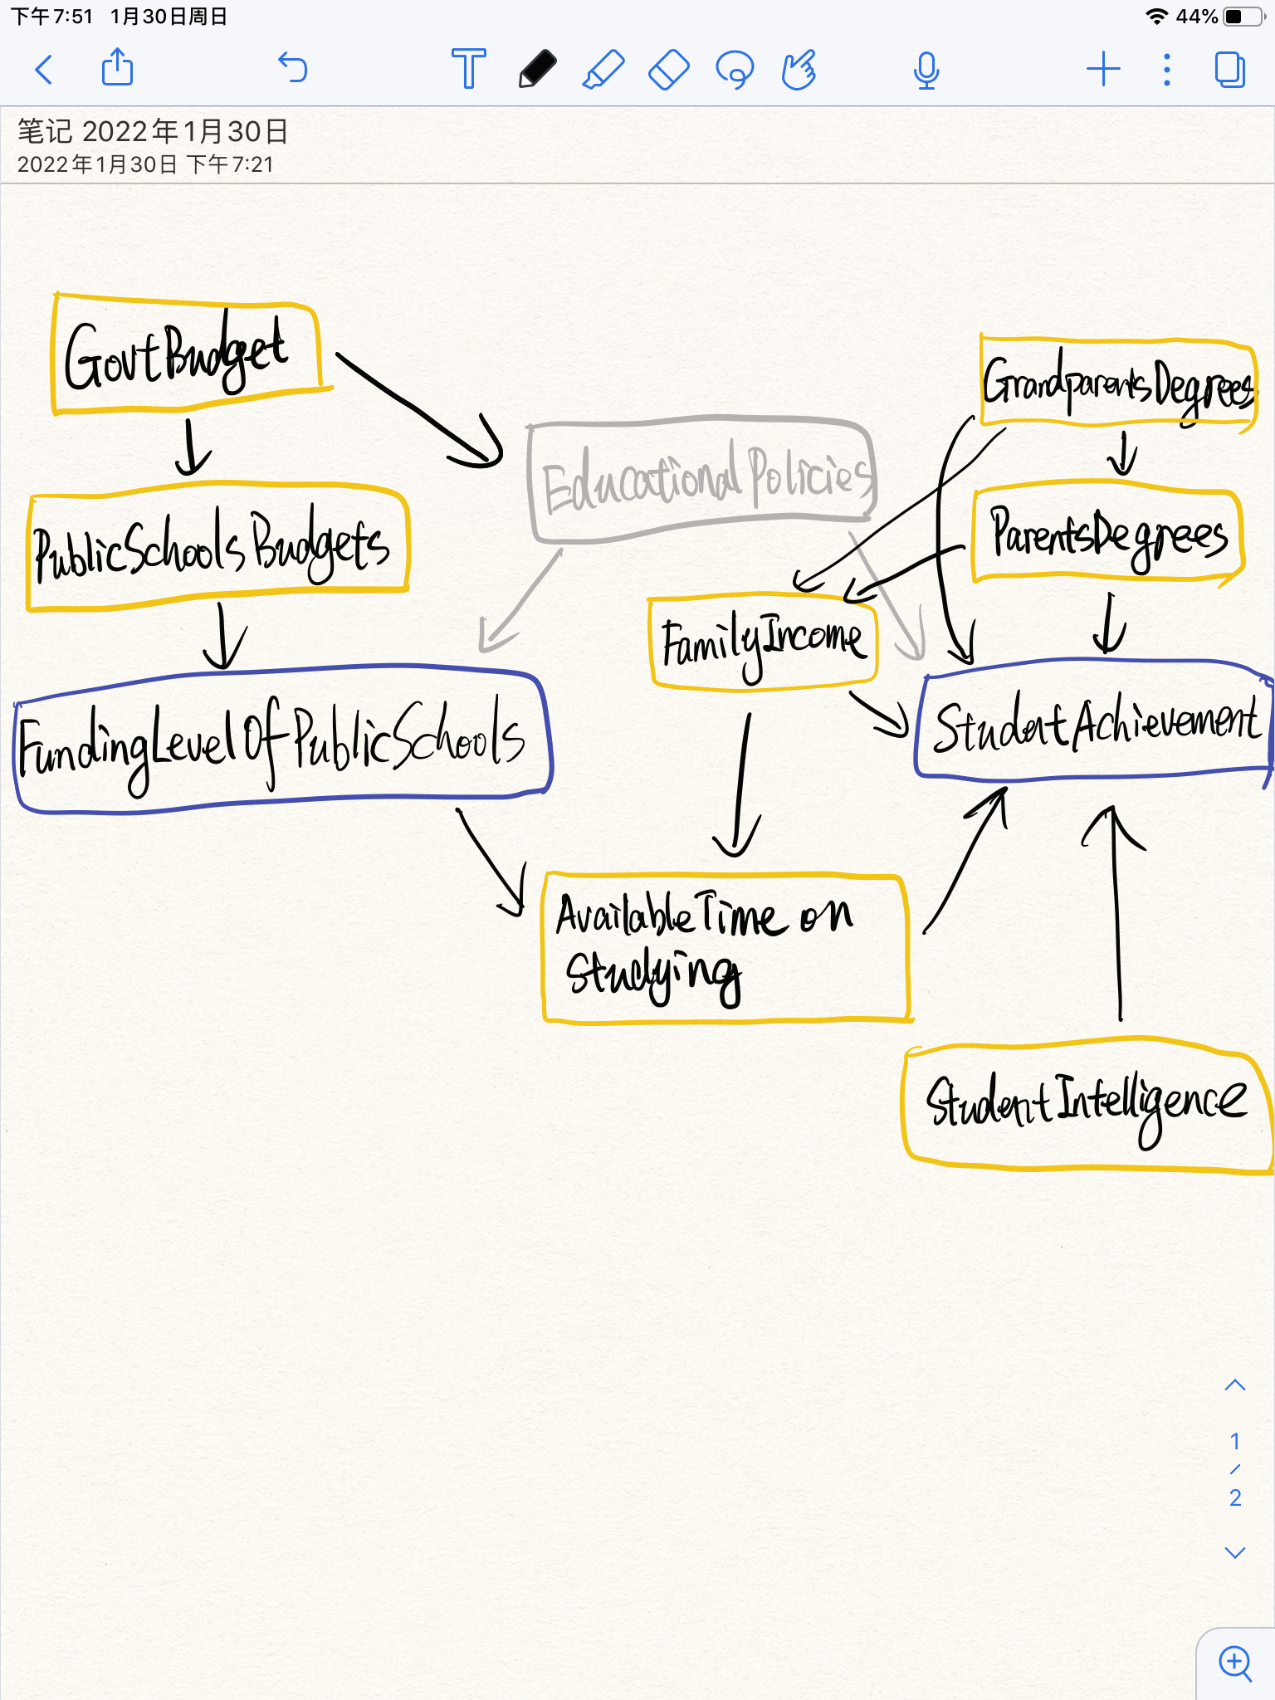 下午7:51 1月30日周日
44%
笔记 2022年1月30日
2022年1月30日 下午7:21
GovtBudget
GrandparentsDegrees
Educational Policies
PublicSchoolsBudgets
ParentsDegrees
FamilyIncome
FundingLevelOfPublicSchools
StudentAchievement
AvailableTime on
Studying
StudentIntelligence
1
/
2